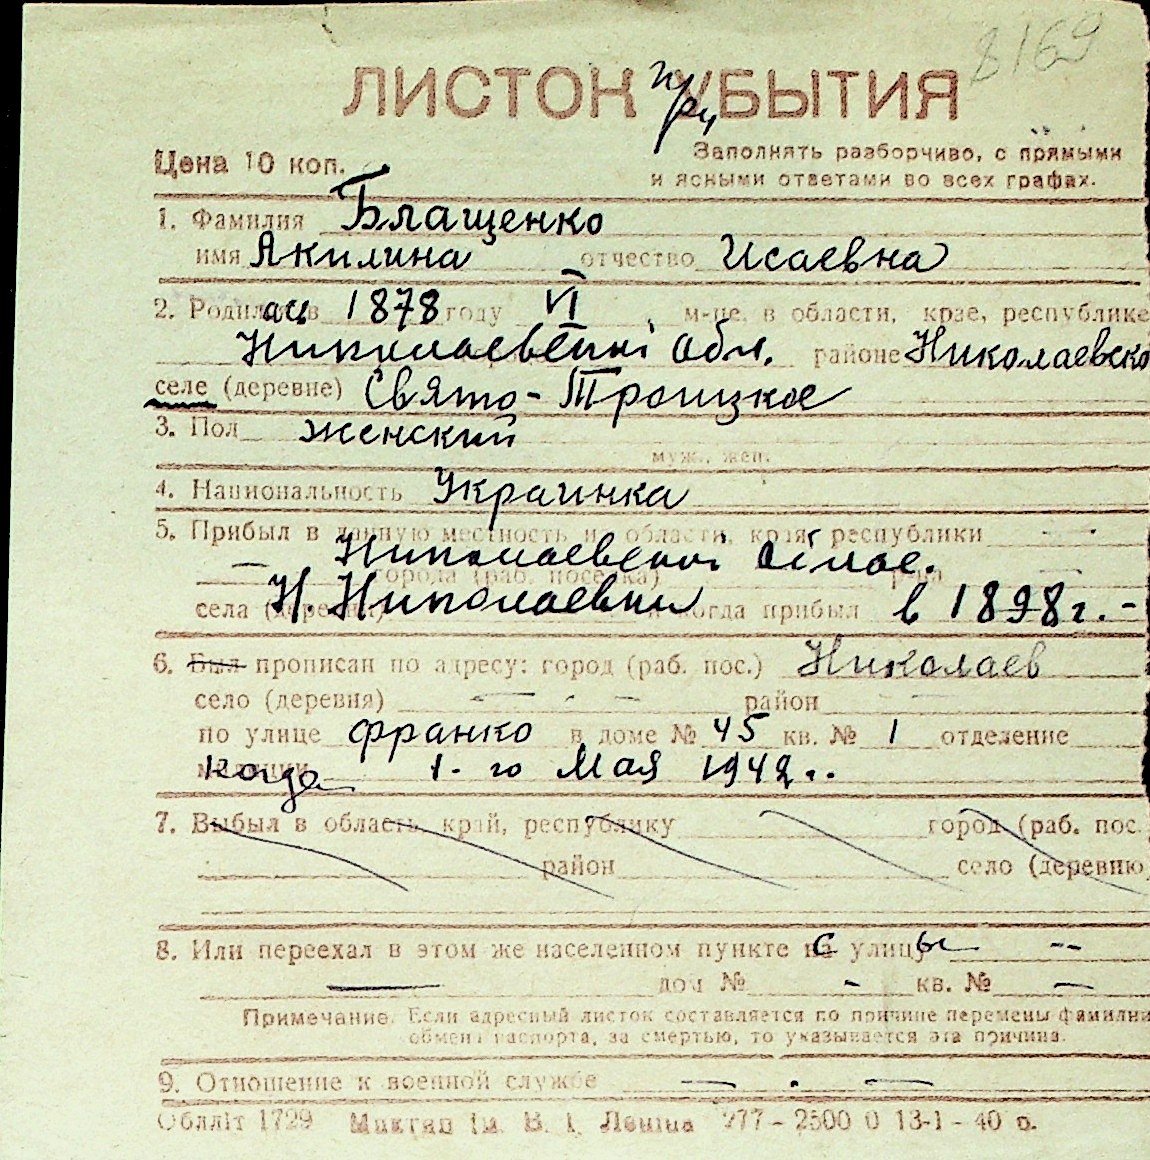 8169
ЛИСТОК УБЫТИЯ
при
Цена 10 коп.
Заполнять разборчиво, с прямыми
и ясными ответами во всех графах.
1. Фамилия Блащенко
имя Акилина отчество Исаевна
2. Родилась в 1878 году VI м-це, в области, крае, республике
Николаевской обл. районе Николаевско
селе (деревне) Свято-Троицкое
3. Пол женский
муж., жен.
4. Национальность Украинка
5. Прибыл в данную местность из области, края, республики
Николаевской облас.
города (раб. поселка) р-на
села (деревни) Н. Николаевки и когда прибыл в 1898 г. -
6. Был прописан по адресу: город (раб. пос.) Николаев
село (деревня) - . - район
по улице франко в доме № 45 кв. № 1 отделение
милиции когда 1-го Мая 1942..
7. Выбыл в область, край, республику город (раб. пос.
район село (деревню
8. Или переехал в этом же населенном пункте с улицы --
— дом № - кв. № —
Примечание. Если адресный листок составляется по причине перемены фамилии
обмена паспорта, за смертью, то указывается эта причина.
9. Отношение к военной службе — . —
Облліт 1729 Миктип ім. В. І. Леніна 977 - 2500 0 13-1 - 40 р.